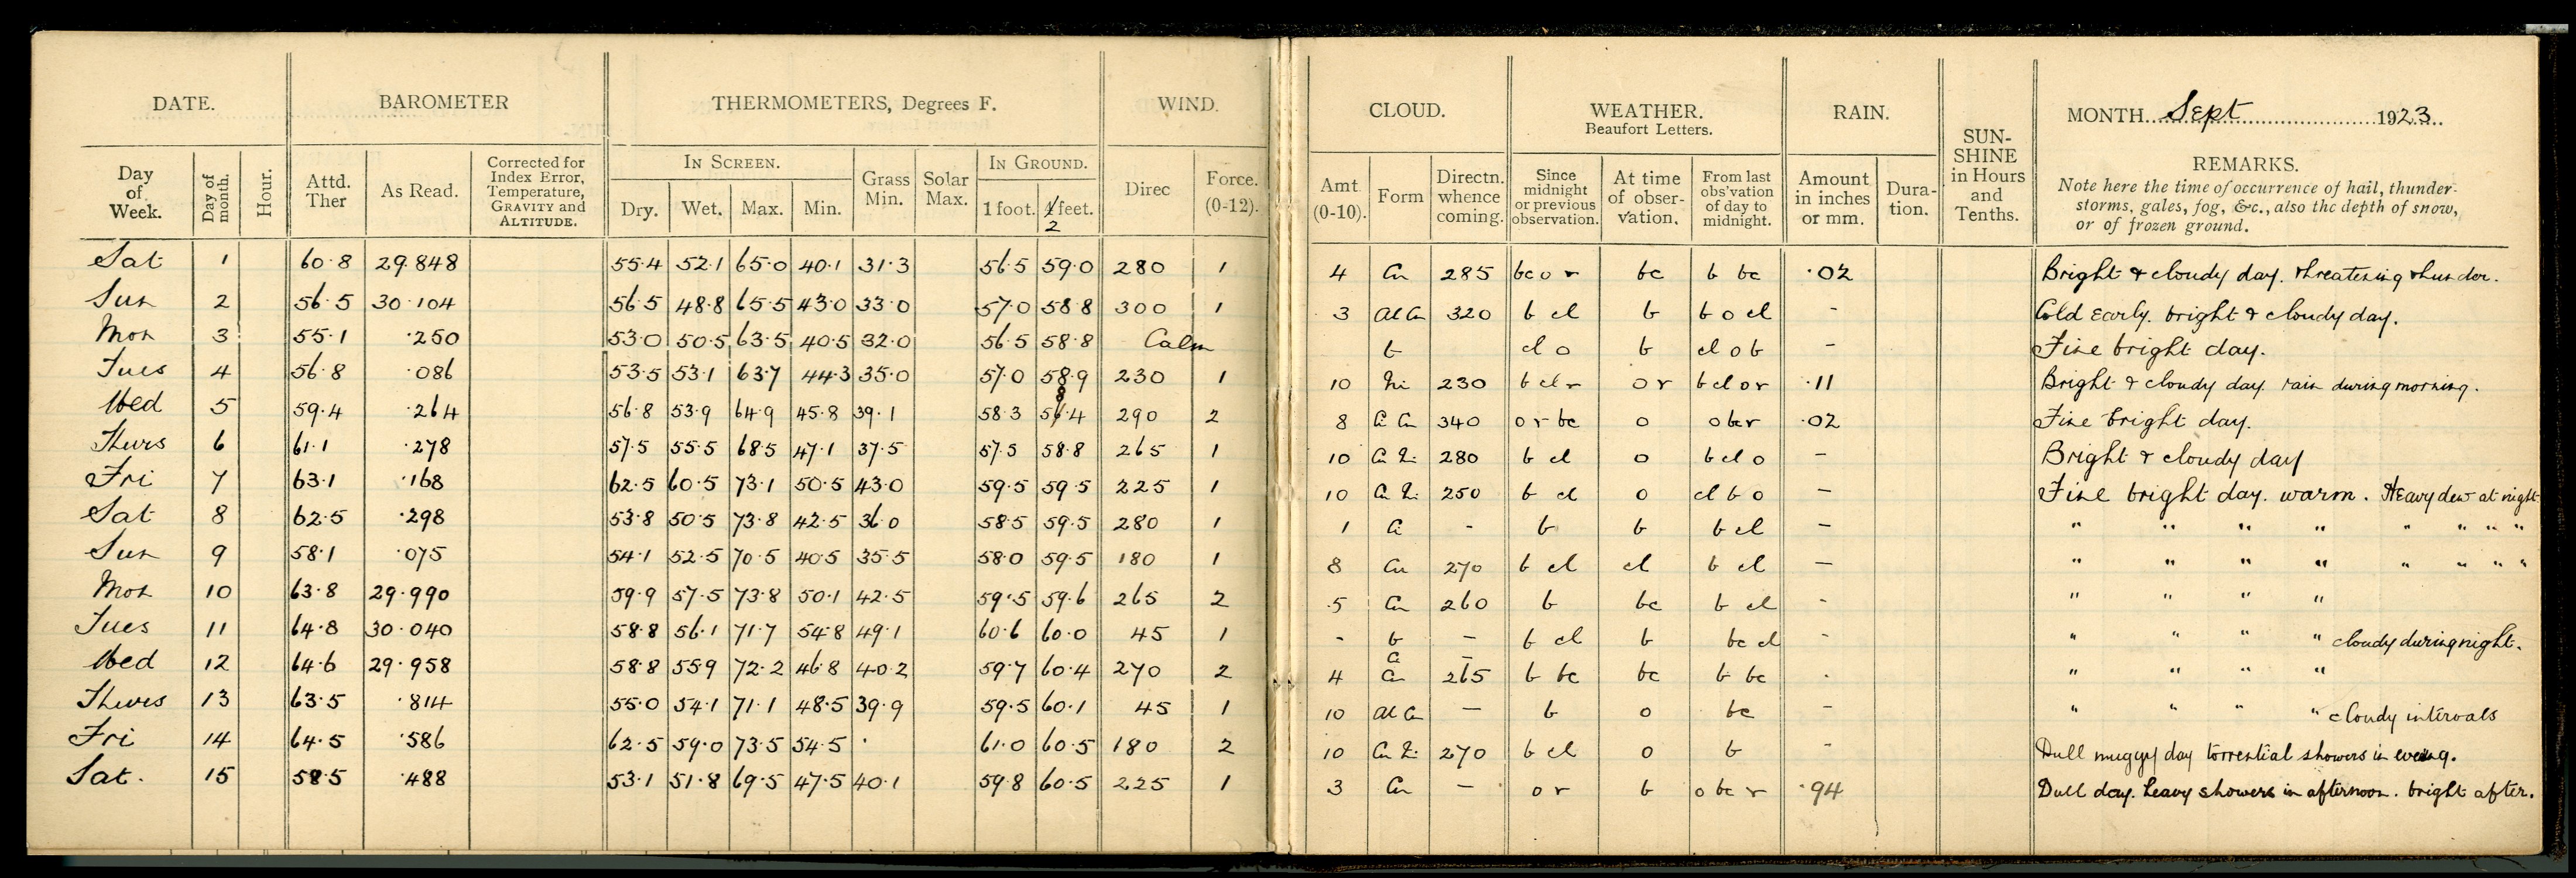 DATE. BAROMETER THERMOMETERS, Degrees F. WIND. CLOUD. WEATHER. Beaufort Letters. RAIN. SUN-SHINE in Hours and Tenths. MONTH Sept 1923
Day of Week. Day of month. Hour. Attd. Ther As Read. Corrected for Index Error, Temperature, GRAVITY and ALTITUDE. IN SCREEN. Dry. Wet. Max. Min. Grass Min. Solar Max. IN GROUND. 1 foot. 4 feet. 2 Direc Force. (0-12). Amt (0-10). Form Directn. whence coming. Since midnight or previous observation. At time of obser-vation. From last obs'vation of day to midnight. Amount in inches or mm. Dura-tion. REMARKS.
Note here the time of occurrence of hail, thunder-
storms, gales, fog, &c., also the depth of snow,
or of frozen ground.
Sat 1 60.8 29.848 55.4 52.1 65.0 40.1 31.3 56.5 59.0 280 1 4 Cu 285 bc o r bc b bc .02 Bright & cloudy day. threatening thunder.
Sun 2 56.5 30.104 56.5 48.8 65.5 43.0 33.0 57.0 58.8 300 1 3 Al Cu 320 b cl b b o cl - Cold early. bright & cloudy day.
Mon 3 55.1 .250 53.0 50.5 63.5 40.5 32.0 56.5 58.8 Calm b cl o b cl o b - Fine bright day.
Tues 4 56.8 .086 53.5 53.1 63.7 44.3 35.0 57.0 58.9 230 1 10 Ni 230 b cl r o r b cl o r .11 Bright & cloudy day. rain during morning.
Wed 5 59.4 .264 56.8 53.9 64.9 45.8 39.1 58.3 58.4 290 2 8 Ci Cu 340 o r bc o o bc r .02 Fine bright day.
Thurs 6 61.1 .278 57.5 55.5 68.5 47.1 37.5 57.5 58.8 265 1 10 Cu Ni 280 b cl o b cl o - Bright & cloudy day
Fri 7 63.1 .168 62.5 60.5 73.1 50.5 43.0 59.5 59.5 225 1 10 Cu Ni 250 b cl o cl b o - Fine bright day. warm. Heavy dew at night
Sat 8 62.5 .298 53.8 50.5 73.8 42.5 36.0 58.5 59.5 280 1 1 Ci - b b b cl - " " " " " " " "
Sun 9 58.1 .075 54.1 52.5 70.5 40.5 35.5 58.0 59.5 180 1 8 Cu 270 b cl cl b cl - " " " " " " " "
Mon 10 63.8 29.990 59.9 57.5 73.8 50.1 42.5 59.5 59.6 265 2 5 Cu 260 b bc b cl - " " " "
Tues 11 64.8 30.040 58.8 56.1 71.7 54.8 49.1 60.6 60.0 45 1 - b - b cl b bc cl - " " " " cloudy during night.
Wed 12 64.6 29.958 58.8 55.9 72.2 46.8 40.2 59.7 60.4 270 2 4 Ci Cu - 265 b bc bc b bc - " " " "
Thurs 13 63.5 .814 55.0 54.1 71.1 48.5 39.9 59.5 60.1 45 1 10 Al Cu - b o bc - " " " " cloudy intervals
Fri 14 64.5 .586 62.5 59.0 73.5 54.5 . 61.0 60.5 180 2 10 Cu Ni 270 b cl o b - Dull muggy day torrential showers in evening.
Sat. 15 58.5 .488 53.1 51.8 69.5 47.5 40.1 59.8 60.5 225 1 3 Cu - o r b o bc r .94 Dull day. heavy showers in afternoon. bright after.